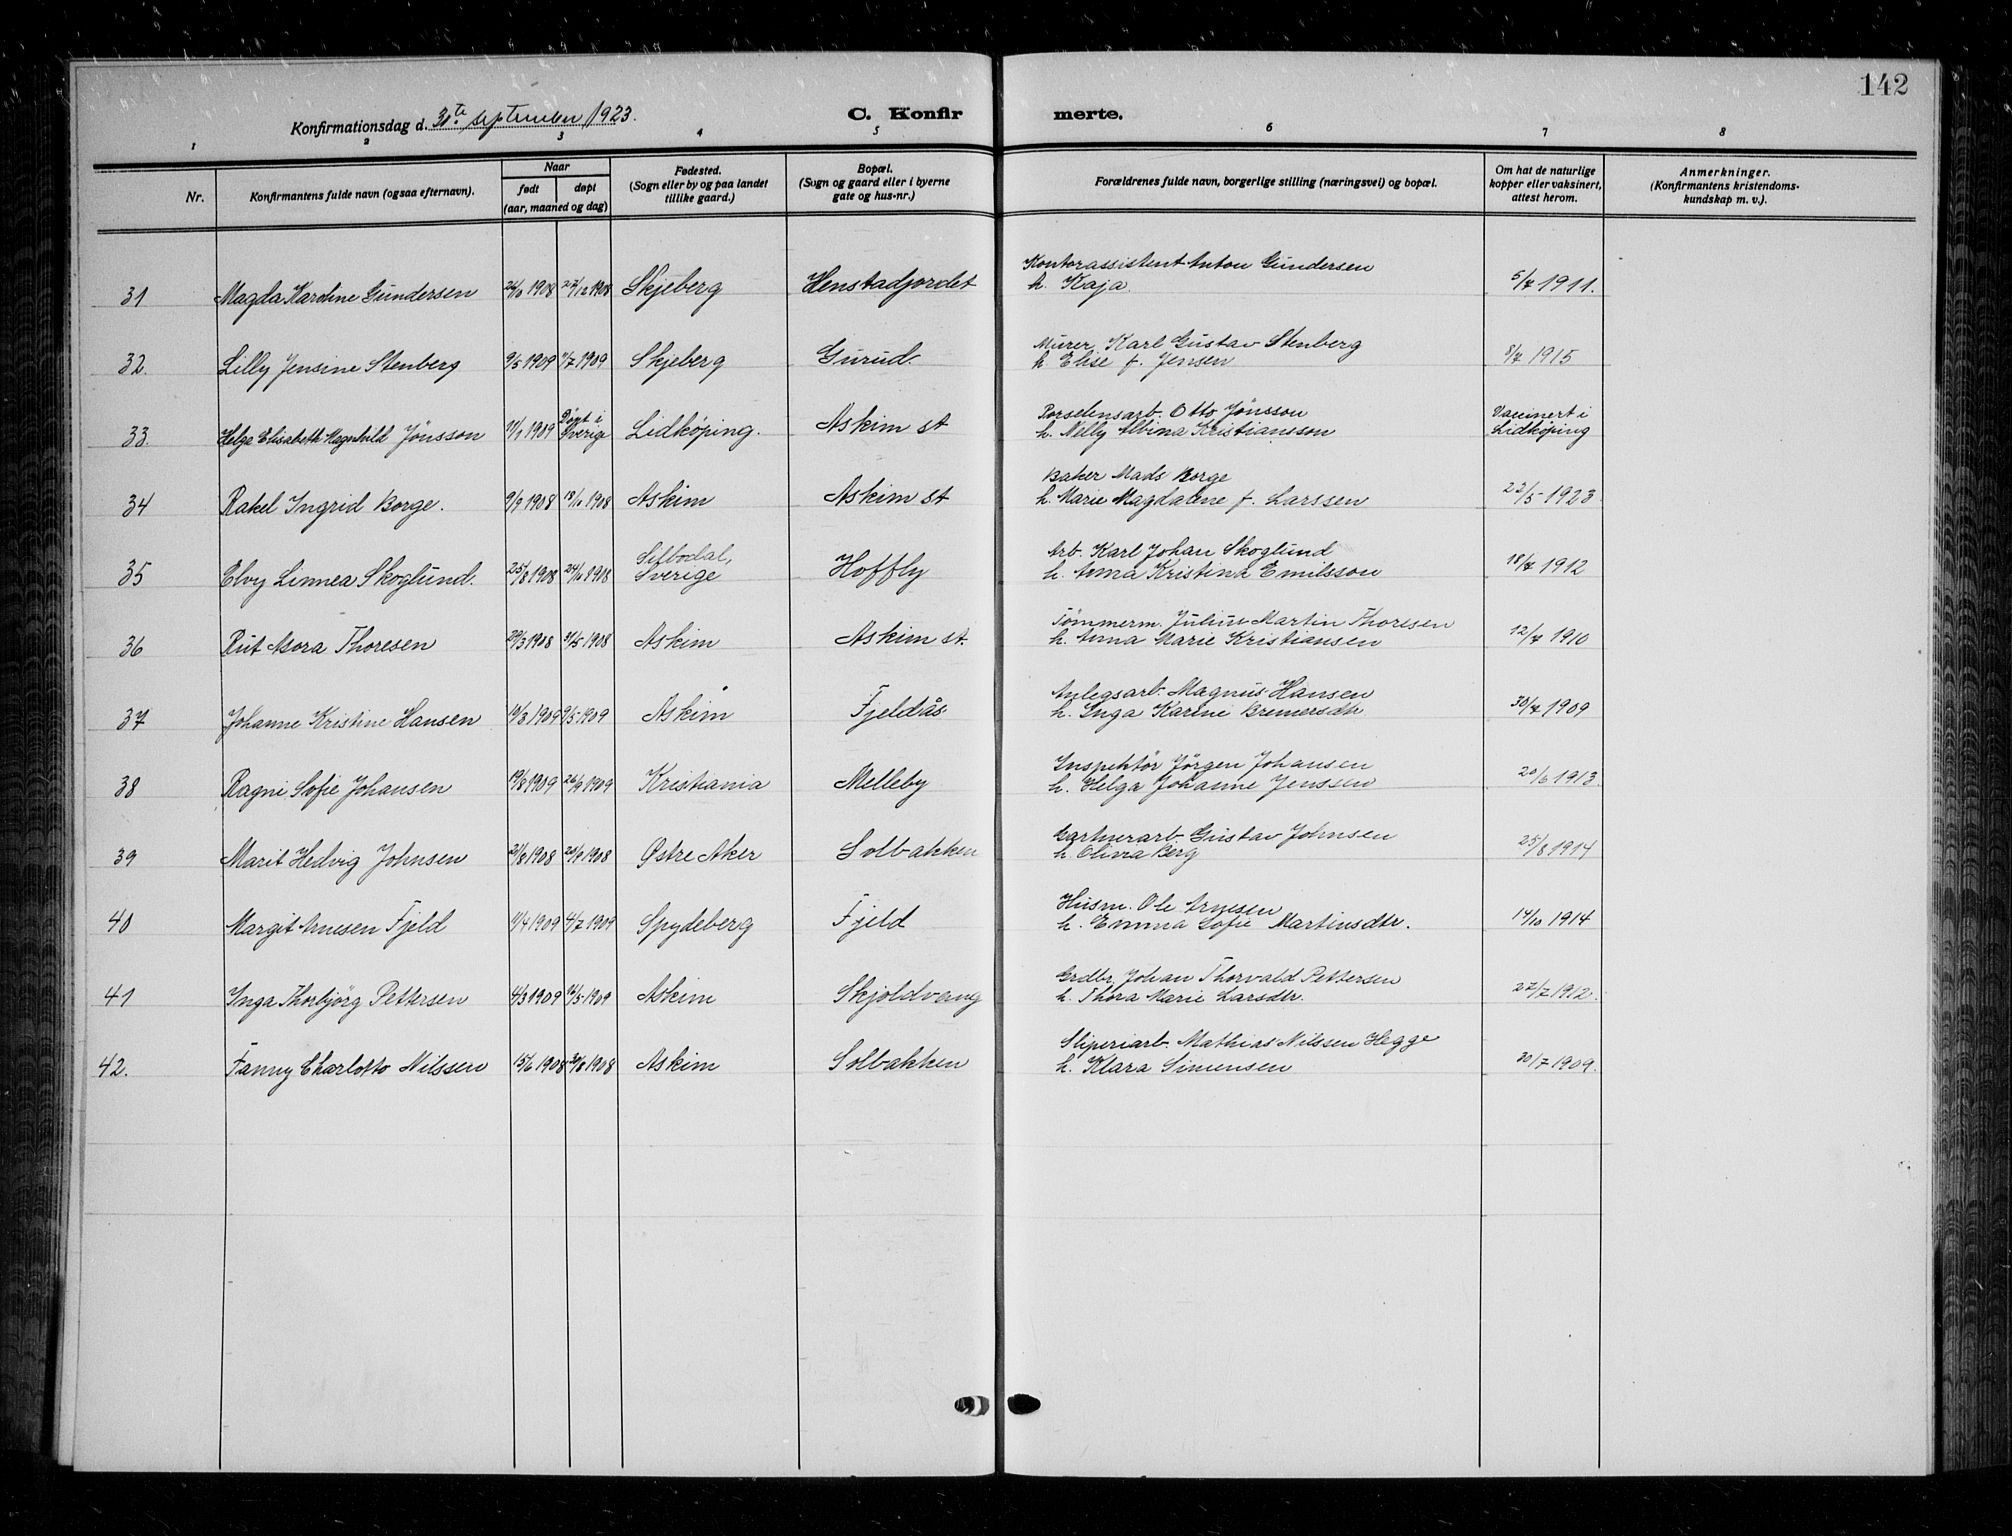 142
Konfirmationsdag d. 30te september 1923.
C. Konfir merte.
1 2 3 4 5 6 7 8
Nr.
Konfirmantens fulde navn (ogsaa efternavn).
Naar
født døpt
(aar, maaned og dag)
Fødested.
(Sogn eller by og paa landet
tillike gaard.)
Bopæl.
(Sogn og gaard eller i byerne
gate og hus-nr.)
Forældrenes fulde navn, borgerlige stilling (næringsvei) og bopæl.
Om hat de naturlige
kopper eller vaksinert,
attest herom.
Anmerkninger.
(Konfirmantens kristendoms-
kundskap m. v.).
Kontorassistent Anton Gundersen
31 Magda Karoline Gundersen 1908 27/12 1908 Skjeberg Henstadjordet h. Kaja. 5/7 1911.
Murer Karl Gustav Stenberg
32. Lilly Jensine Stenberg 9/5 1909 1909 Skjeberg Gurud. h Elise f. Jensen 8/7 1915
Døpt i Porselensarb. Otto Jönsson Vaccinert i
33 Helga Elisabeth Magnhild Jönsson 11/1 1909 Sverige Lidköping. Askim st h. Nelly Albina Kristiansson Lidköping
Baker Mads Borge
34 Rakel Ingrid Borge. 9/9 1908 18/10 1908 Askim Askim st h. Marie Magdalene f. Larssen 22/5 1923
Silbodal, Arb. Karl Johan Skoglund
35 Elvy Linnea Skoglund. 25/8 1908 24/10 1908 Sverige Hoffly h. Anna Kristina Emilsson 18/7 1912
Tømmerm. Julius Martin Thoresen
36 Rut Asora Thoresen 29/3 1908 31/5 1908 Askim Askim st. h. Anna Marie Kristiansen 12/7 1910
Anlegsarb. Magnus Hansen
37 Johanne Kristine Hansen 10/3 1909 9/5 1909 Askim Fjeldås h. Inga Karine Bremersdtr 30/7 1909
Inspektör Jörgen Johansen
38 Ragni Sofie Johansen 19/8 1909 26/9 1909 Kristiania Melleby h. Helga Johanne Jenssen 20/6 1913.
Gartnerarb. Gustav Johnsen
39 Marit Hedvig Johnsen 21/8 1908 20/9 1908 Østre Aker Solbakken h. Olivia Berg 25/8 1914
Husm. Ole Arnesen
40 Margit Arnesen Fjeld 11/4 1909 4/7 1909 Spydeberg Fjeld h. Emma Sofie Martinsdtr. 14/10 1914
Grdbr. Johan Thorvald Pettersen
41 Inga Thorbjörg Pettersen 4/3 1909 16/5 1909 Askim Skjoldvang h. Thora Marie Larsdtr. 27/7 1912.
Sliperiarb. Mathias Nilssen Hegge
42. Fanny Charlotte Nilssen 15/6 1908 30/8 1908 Askim Solbakken h. Klara Simensen 30/7 1909.